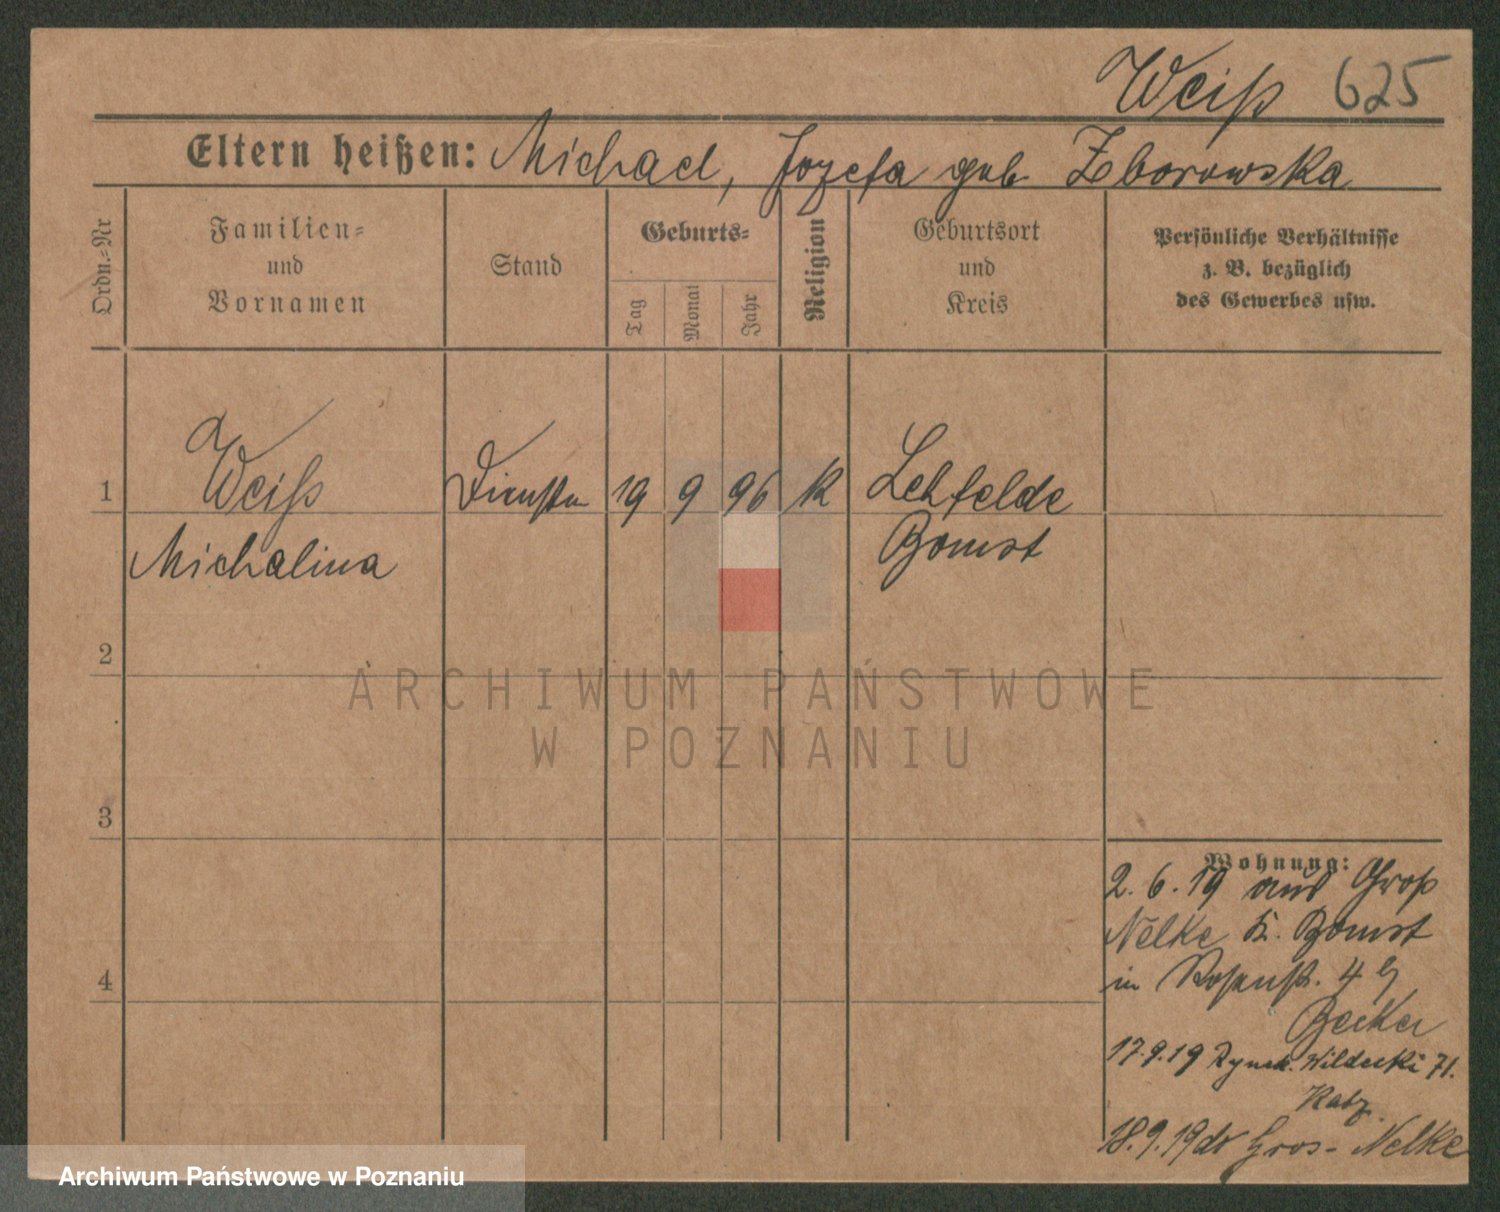 Weiß 625
Eltern heißen: Michael, Jozefa geb Zborowska
Ordn.=Nr
Familien=
und
Vornamen
Stand
Geburts=
Tag
Monat
Jahr
Religion
Geburtsort
und
Kreis
Persönliche Verhältnisse
z. B. bezüglich
des Gewerbes usw.
1 Weiß 19 9 96 K Lehfelde
Michalina Bomst
2
3
4
Wohnung:
2. 6. 19 aus Groß
Nelke K. Bomst
in Rosenstr. 4
Becker
17.9.19 Rynek. Wildecki 71.
18.9.19 do Gros-Nelke
ARCHIWUM PAŃSTWOWE
W POZNANIU
Archiwum Państwowe w Poznaniu